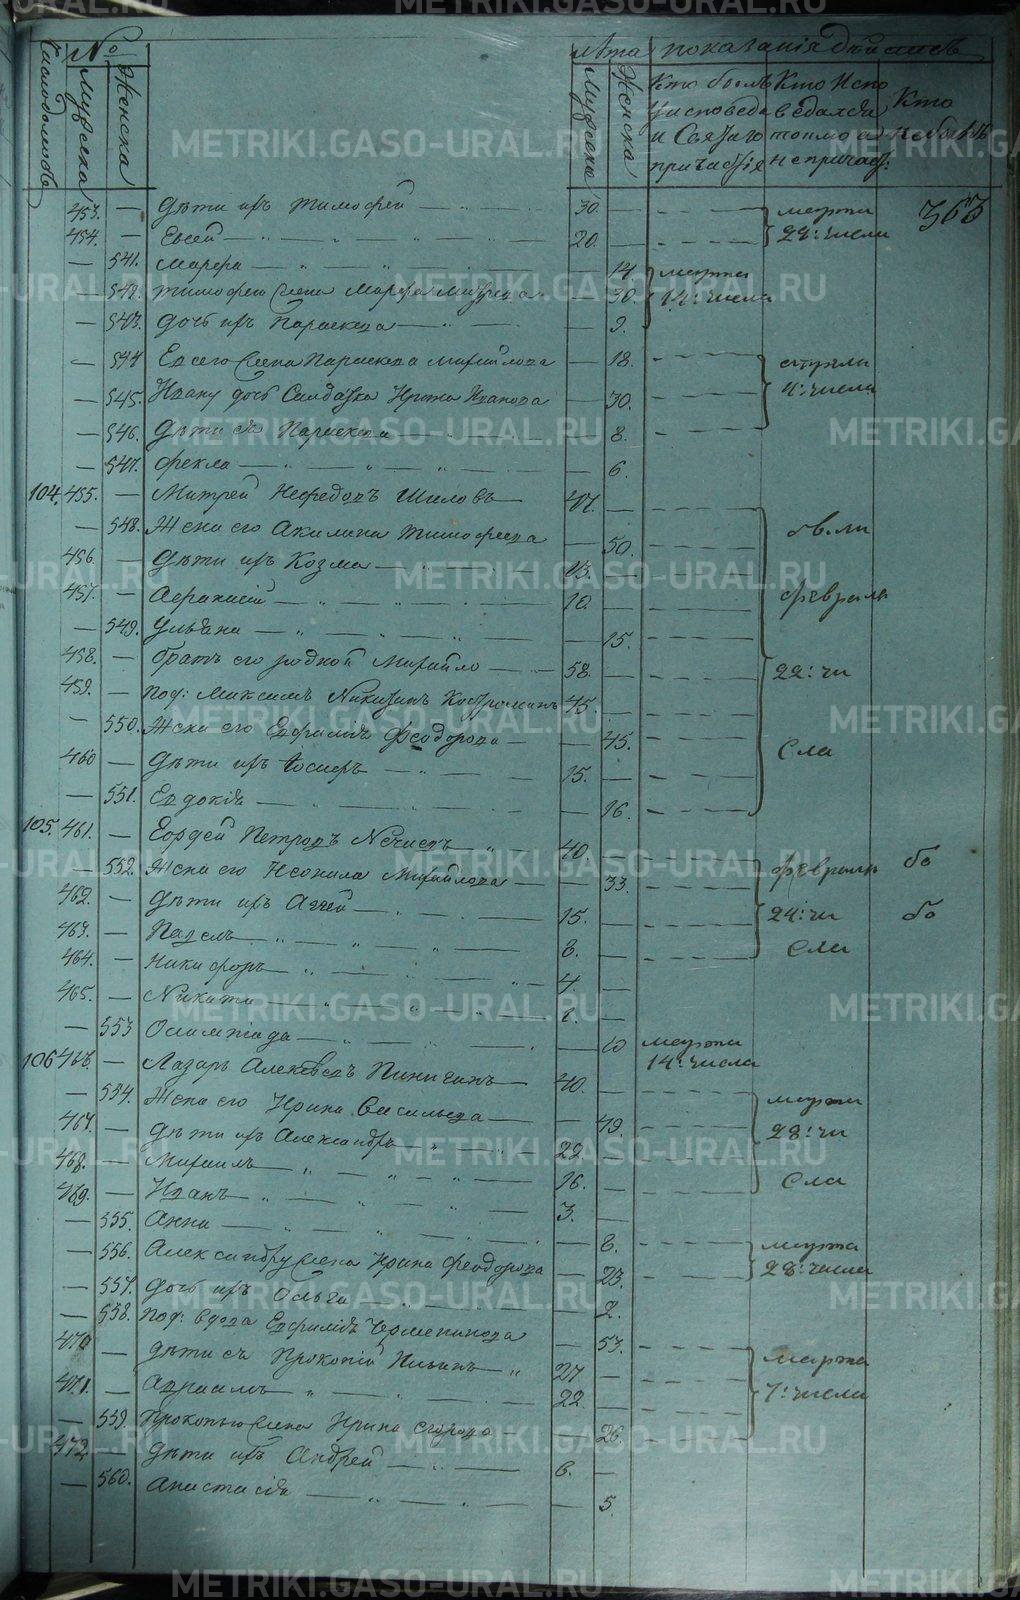 Число домовъ № Мужеска Женска Лѣта Мужеска Женска показанія дѣйствъ
Кто былъ у исповеди и Святаго причастія
Кто Исповедался токмо а не причаст:
Кто не бывъ
363
453. — Дѣти ихъ Тимофей — 30.
454. — Евсей — 20.
марта 22: числа
— 541. Марѳа — 14.
— 542. Тимофею Жена Марѳа — 30.
— 543. Дочь ихъ Параскева — 9.
марта 14: числа
— 544 Евсею Жена Параскева Михайлова — 18.
— 545. Ивану дочь Салдатка Ирина Иванова — 30.
— 546. Дѣти ея Параскева — 8.
апрѣля 4: числа
— 547. Фекла — 6.
104. 455. — Митрей Нефедовъ Шиловъ — 47.
— 548. Жена его Акилина Тимофеева — 50.
456. — Дѣти ихъ Козма — 13.
457. — Афанасий — 10.
— 549. Ульяна — 15.
458. — братъ его родной Михайло — 58.
459. — под: Максимъ Никитинъ — 45
— 550. Жена его Евфимія Феодорова — 45.
460 — Дѣти ихъ Іосифъ — 15.
— 551. Евдокія — 16.
февраля 22: числа
105. 461. — Гордей Петровъ — 40.
— 552. Жена его Неонила Михайлова — 33.
462. — Дѣти ихъ Аггей — 15.
463. — Павелъ — 8.
464. — Никифоръ — 4.
февраля 24: числа
465. — Никита
— 553 Олимпіада — 10
марта 14: числа
106 466. — Лазарь Алексѣевъ Пиничинъ — 40.
— 554. Жена его Ирина Васильева — 49.
467. — Дѣти ихъ Александръ — 22.
468. — Михаилъ — 16.
марта 28: числа
469. — Иванъ — 3.
— 555. Анна — 8.
— 556. Александру Жена Ирина Феодорова — 23.
марта 28: числа
— 557. Дочь ихъ Ольга — 2.
— 558. под: вдова Евфимія — 53.
470 — Дѣти ея Прокопій Ильинъ — 27
471. — Авраамъ — 22.
— 559. Прокопью Жена Ирина Егорова — 26
марта 7: числа
472. — Дѣти ихъ Андрей — 6.
— 560. Анастасія — 5.
METRIKI.GASO-URAL.RU